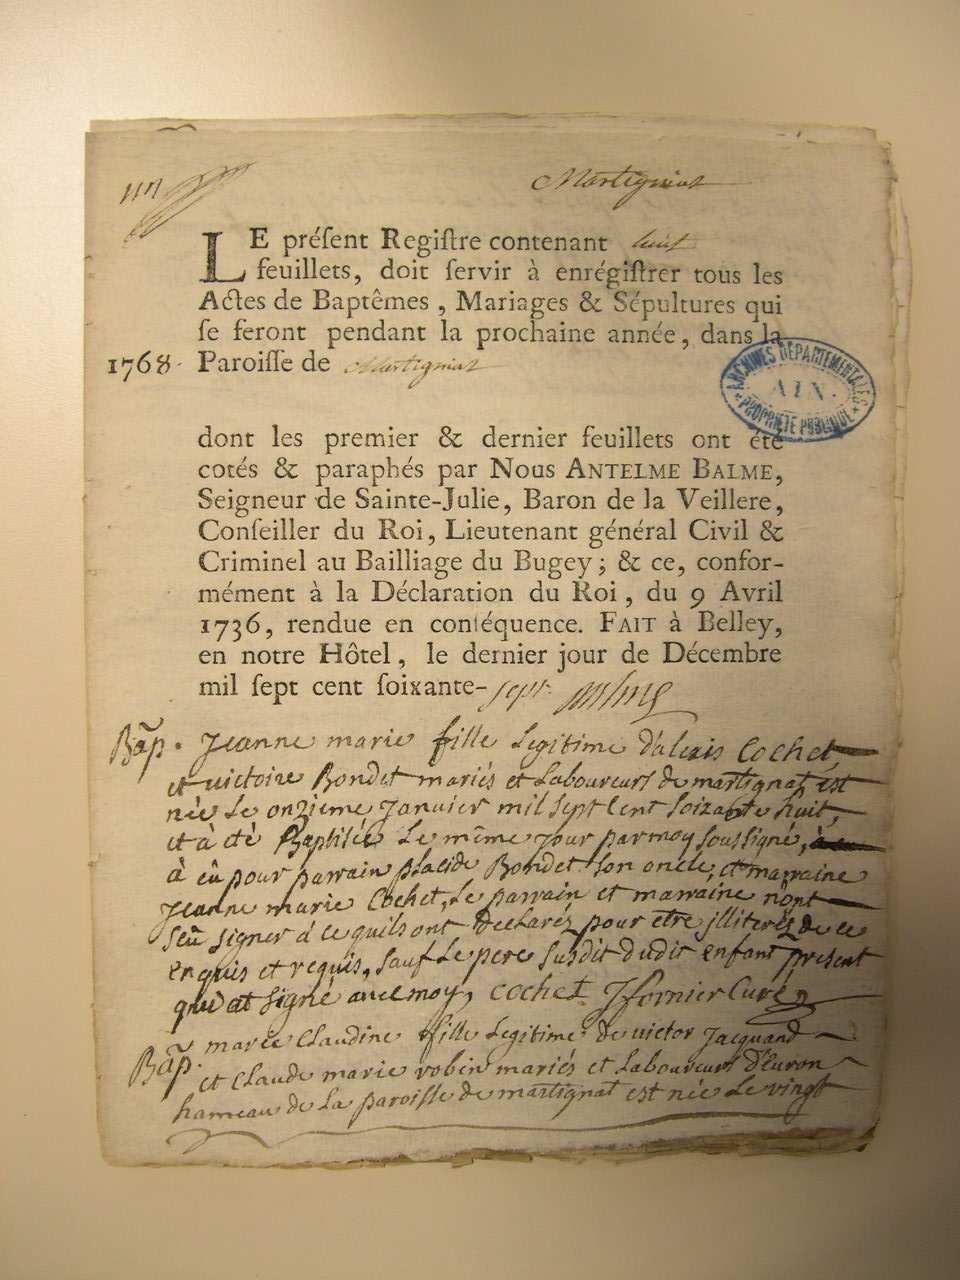 Martigniat
LE préſent Regiſtre contenant huit
feuillets, doit ſervir à enrégiſtrer tous les
Actes de Baptêmes, Mariages & Sépultures qui
ſe feront pendant la prochaine année, dans la
1768. Paroiſſe de Martigniat
ARCHIVES DÉPARTEMENTALES
AIN.
PROPRIÉTÉ PUBLIQUE
dont les premier & dernier feuillets ont été
cotés & paraphés par Nous ANTELME BALME,
Seigneur de Sainte-Julie, Baron de la Veillere,
Conſeiller du Roi, Lieutenant général Civil &
Criminel au Bailliage du Bugey; & ce, confor-
mément à la Déclaration du Roi, du 9 Avril
1736, rendue en conſéquence. FAIT à Belley,
en notre Hôtel, le dernier jour de Décembre
mil ſept cent ſoixante-sept
Bap. Jeanne marie fille legitime d'alexis Cochet,
et victoire Bondet mariés et Laboureurs de martignat est
née le onzieme Janvier mil sept cent soizante huit,
et à été Baptisée le même jour par moy soussigné,
à eû pour parrain placide Bondet son oncle, et marraine
Jeanne marie Cochet, le parrain et marraine n'ont
sçu signer à ce quils ont declaréz pour être illiteréz de ce
enquis et requis, sauf le pere susdit dudit enfant present
qui at signé avec moy, cochet Jfornier Curé
Bap. marie Claudine fille legitime de victor Jacquand
et Claude marie robin mariés et Laboureurs d'Evron
hameau de la paroisse de martignat est née le vingt